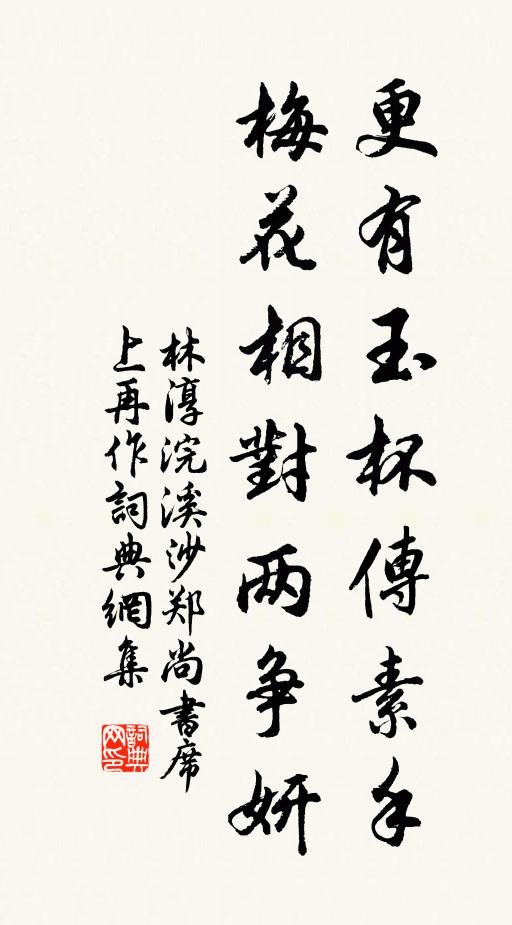 更有玉杯傳素手
梅花相對两争妍
林淳浣溪沙郑尚書席
上再作詞典網集
詞典
网印